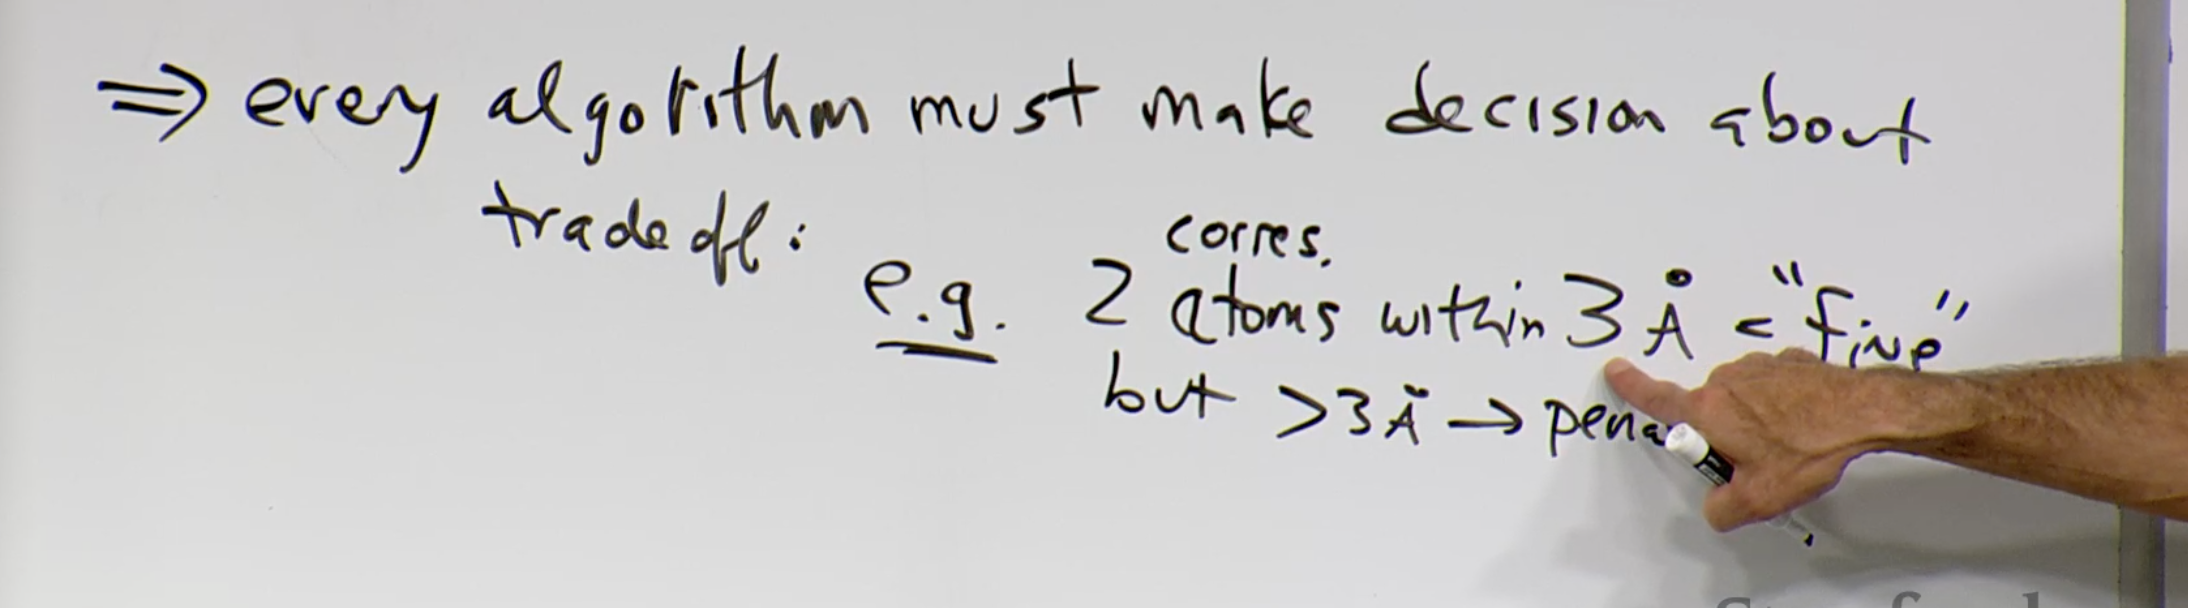 ⇒ every algorithm must make decision about
tradeoff:
corres.
e.g. 2 atoms within 3 Å = "fine"
but >3Å → pena